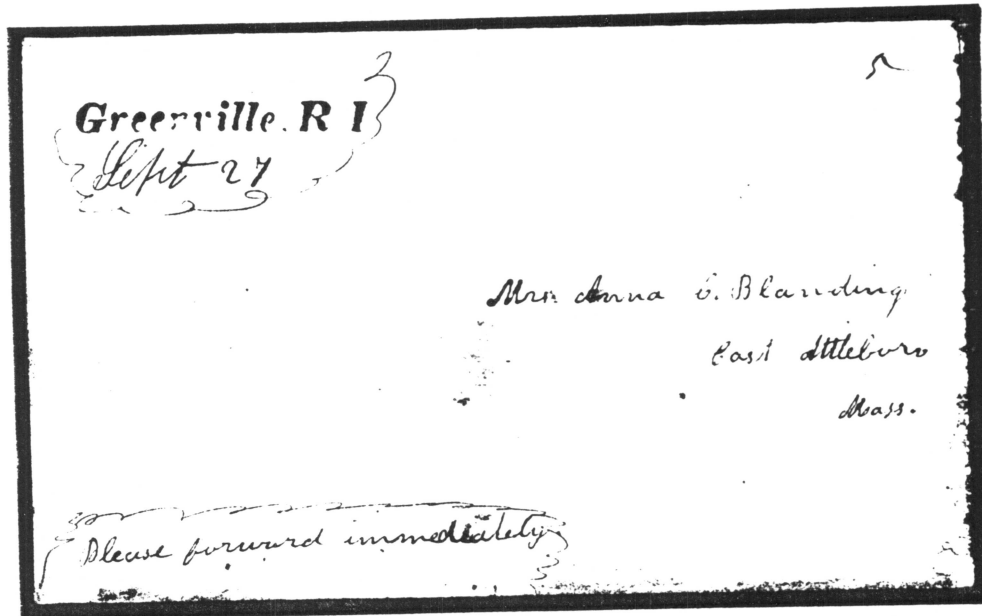 Greenville. R I
5
Sept 27
Mrs Anna C. Blanding
East Attleboro
Mass.
Please forward immediately